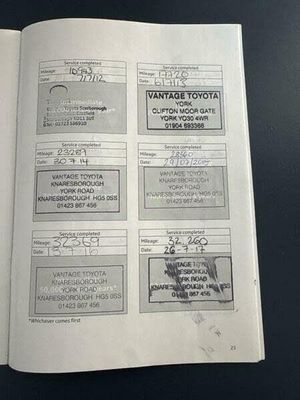 Service completed
Mileage: 10943
Date: 7/7/12
Scarborough
YO11 3UT
01723 586930
Service completed
Mileage: 17720
Date: 6/7/13
VANTAGE TOYOTA
YORK
CLIFTON MOOR GATE
YORK YO30 4WR
01904 693366
Service completed
Mileage: 23287
Date: 30.7.14
VANTAGE TOYOTA
KNARESBOROUGH
YORK ROAD
KNARESBOROUGH HG5 0SS
01423 867 456
Service completed
Mileage:
Date: 29/07/2015
VANTAGE TOYOTA
KNARESBOROUGH
YORK ROAD
KNARESBOROUGH. HG5 0SS
01423 867 456
Service completed
Mileage: 32369
Date: 7.16
VANTAGE TOYOTA
KNARESBOROUGH
YORK ROAD
KNARESBOROUGH. HG5 0SS
01423 867 456
Service completed
Mileage: 32,260
Date: 26-7-17
VANTAGE TOYOTA
KNARESBOROUGH
YORK ROAD
KNARESBOROUGH. HG5 0SS
01423 867 456
*Whichever comes first
21